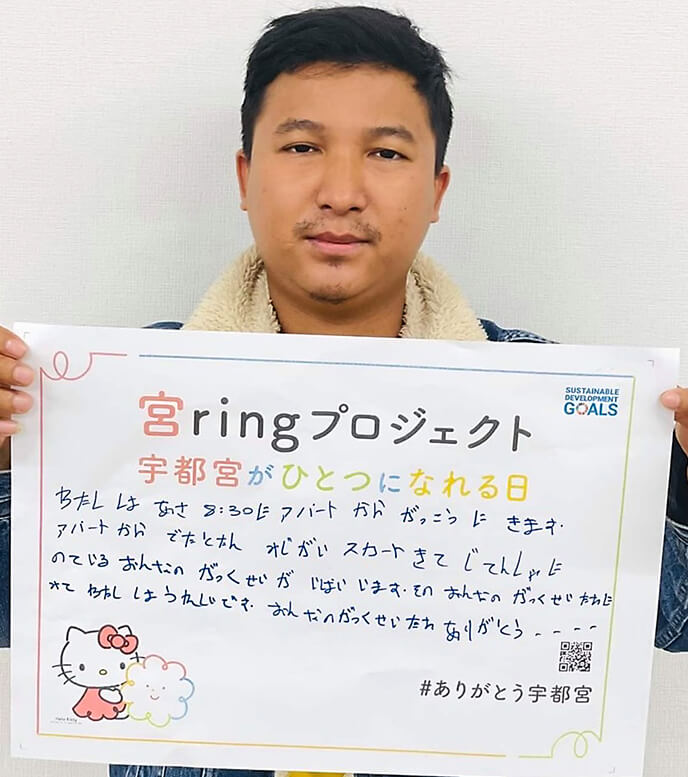 SUSTAINABLE
DEVELOPMENT
GOALS
宮ringプロジェクト
宇都宮がひとつになれる日
わたし は あさ 8:30に アパート から がっこう に きます.
アパートから でたとたん みじかい スカート きて じてんしゃに
のている おんなの がっくせいが いぱい います. その おんなの がっくせい たちに
みて わたし は うれしいです. おんなのがっくせい たち ありがとう - - - -
Hello Kitty
#ありがとう宇都宮